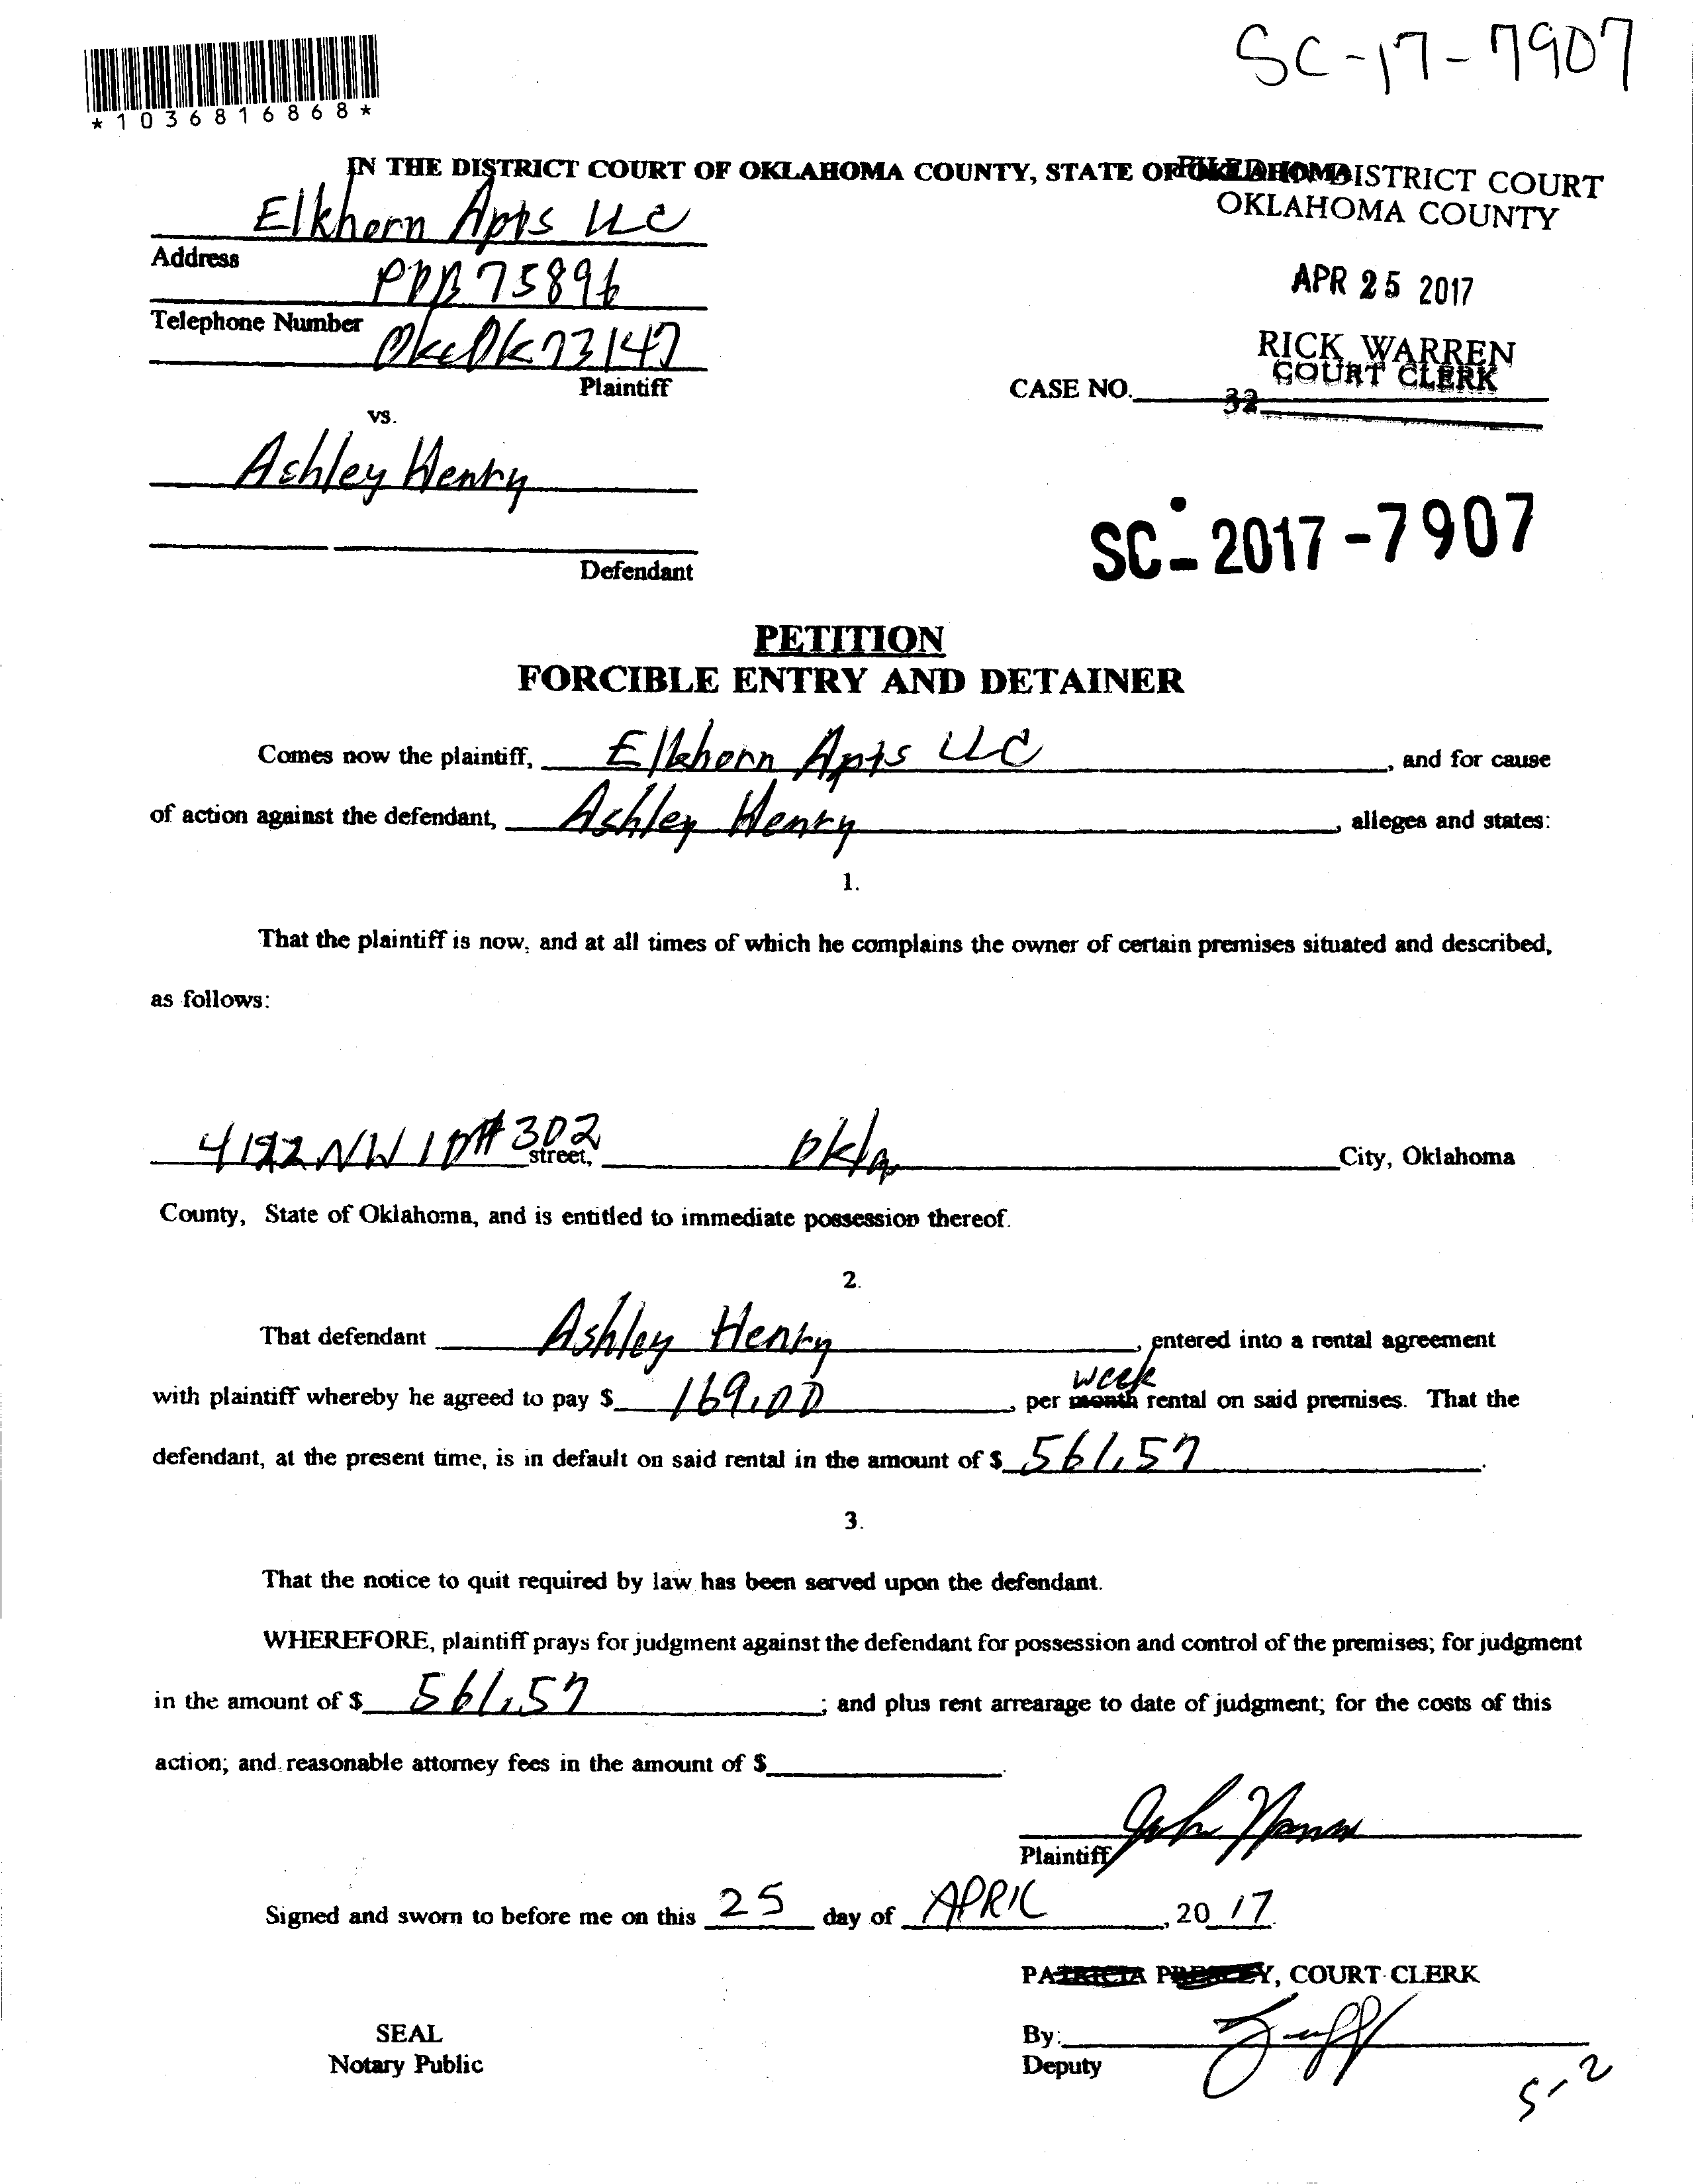 SC-17-7907
*1036816868*
IN THE DISTRICT COURT OF OKLAHOMA COUNTY, STATE OF OKLAHOMA
FILED IN DISTRICT COURT
OKLAHOMA COUNTY
Elkhorn Apts LLC
Address
POB 75896
APR 25 2017
Telephone Number
OKC OK 73147
RICK WARREN
COURT CLERK
Plaintiff
CASE NO.
32
vs.
Ashley Henry
SC-2017-7907
Defendant
PETITION
FORCIBLE ENTRY AND DETAINER
Comes now the plaintiff, Elkhorn Apts LLC, and for cause
of action against the defendant, Ashley Henry, alleges and states:
1.
That the plaintiff is now, and at all times of which he complains the owner of certain premises situated and described,
as follows:
NW 10 #302 street, Okla City, Oklahoma
County, State of Oklahoma, and is entitled to immediate possession thereof.
2.
That defendant Ashley Henry, entered into a rental agreement
week
with plaintiff whereby he agreed to pay $ 169.00, per month rental on said premises. That the
defendant, at the present time, is in default on said rental in the amount of $ 561.57.
3.
That the notice to quit required by law has been served upon the defendant.
WHEREFORE, plaintiff prays for judgment against the defendant for possession and control of the premises; for judgment
in the amount of $ 561.57; and plus rent arrearage to date of judgment; for the costs of this
action; and reasonable attorney fees in the amount of $.
John
Plaintiff
Signed and sworn to before me on this 25 day of APRIL, 20 17
PATRICIA PRESLEY, COURT CLERK
SEAL
By:
Notary Public
Deputy
5-2